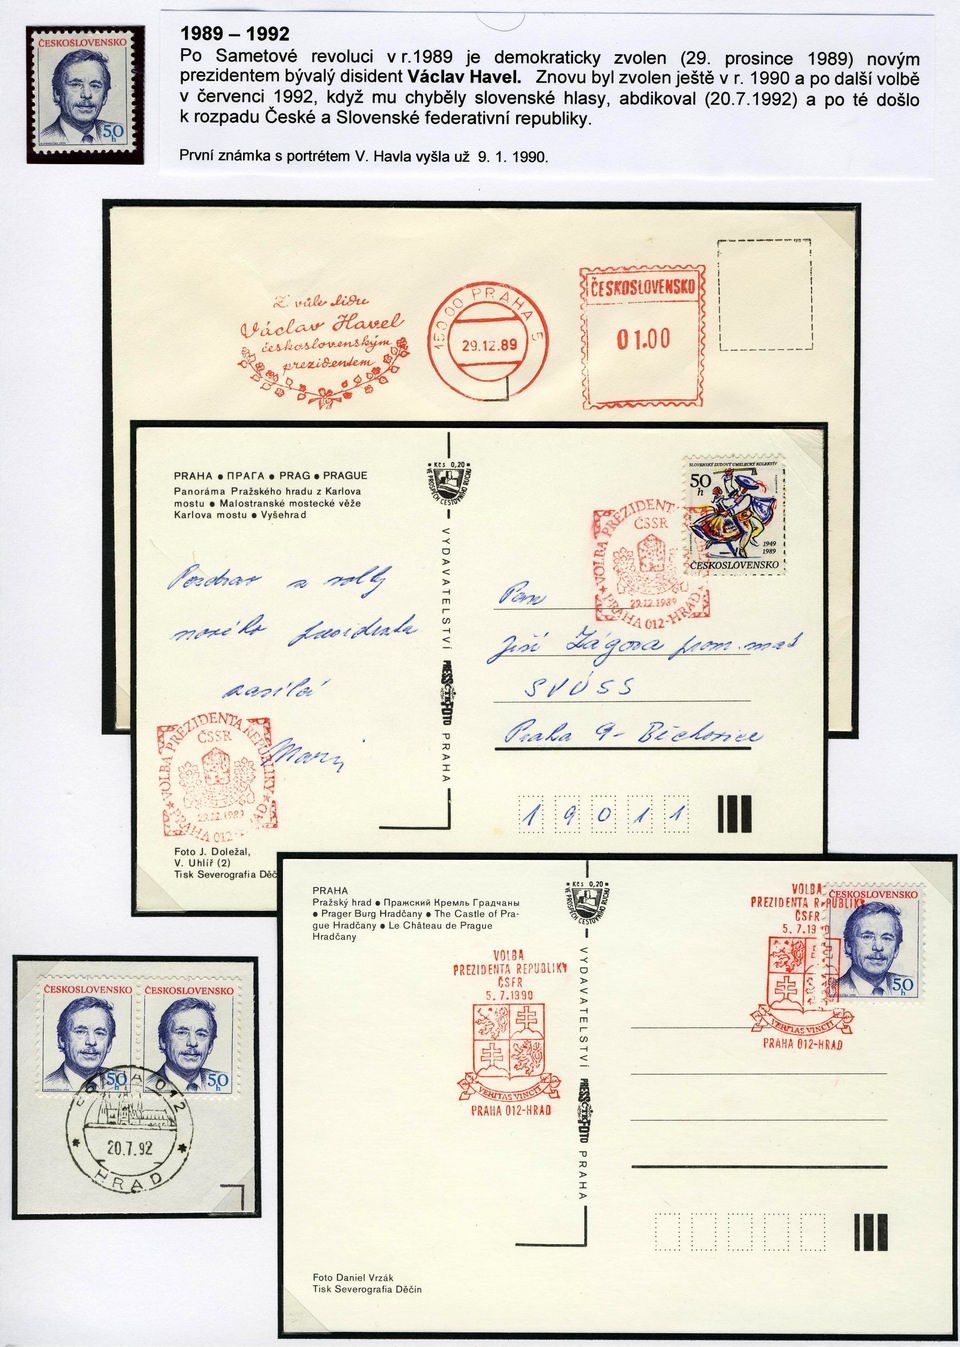 ČESKOSLOVENSKO
50
h
1989 – 1992
Po Sametové revoluci v r.1989 je demokraticky zvolen (29. prosince 1989) novým
prezidentem bývalý disident Václav Havel. Znovu byl zvolen ještě v r. 1990 a po další volbě
v červenci 1992, když mu chyběly slovenské hlasy, abdikoval (20.7.1992) a po té došlo
k rozpadu České a Slovenské federativní republiky.
První známka s portrétem V. Havla vyšla už 9. 1. 1990.
Z vůle lidu
Václav Havel
československým
prezidentem
150 00 PRAHA 5
29.12.89
ČESKOSLOVENSKO
01.00
PRAHA ● ПРАГА ● PRAG ● PRAGUE
Panoráma Pražského hradu z Karlova
mostu ● Malostranské mostecké věže
Karlova mostu ● Vyšehrad
Kčs 0,20
VE PROSPĚCH CESTOVNÍHO RUCHU
VYDAVATELSTVÍ PRESSFOTO PRAHA
SLOVENSKÝ ĽUDOVÝ UMELECKÝ KOLEKTÍV
50
h
1949
1989
ČESKOSLOVENSKO
VOLBA PREZIDENTA
ČSSR
29.12.1989
PRAHA 012-HRAD
Pozdrav z volby
nového presidenta
zasílá
Pan
Jiří Zágora prom. mat
SVÚSS
Praha 9 - Běchovice
19011
VOLBA PREZIDENTA REPUBLIKY
ČSSR
29.12.1989
PRAHA 012-HRAD
Foto J. Doležal,
V. Uhlíř (2)
Tisk Severografia Děč
PRAHA
Pražský hrad ● Пражский Кремль Градчаны
● Prager Burg Hradčany ● The Castle of Pra-
gue Hradčany ● Le Château de Prague
Hradčany
Kčs 0,20
VE PROSPĚCH CESTOVNÍHO RUCHU
VYDAVATELSTVÍ PRESSFOTO PRAHA
VOLBA
PREZIDENTA REPUBLIKY
ČSFR
5.7.1990
VERITAS VINCIT
PRAHA 012-HRAD
VOLBA
PREZIDENTA REPUBLIKY
ČSFR
5.7.19
VERITAS VINCIT
PRAHA 012-HRAD
ČESKOSLOVENSKO
50
h
Foto Daniel Vrzák
Tisk Severografia Děčín
ČESKOSLOVENSKO
50
h
ČESKOSLOVENSKO
50
h
PRAHA 012
20.7.92
HRAD